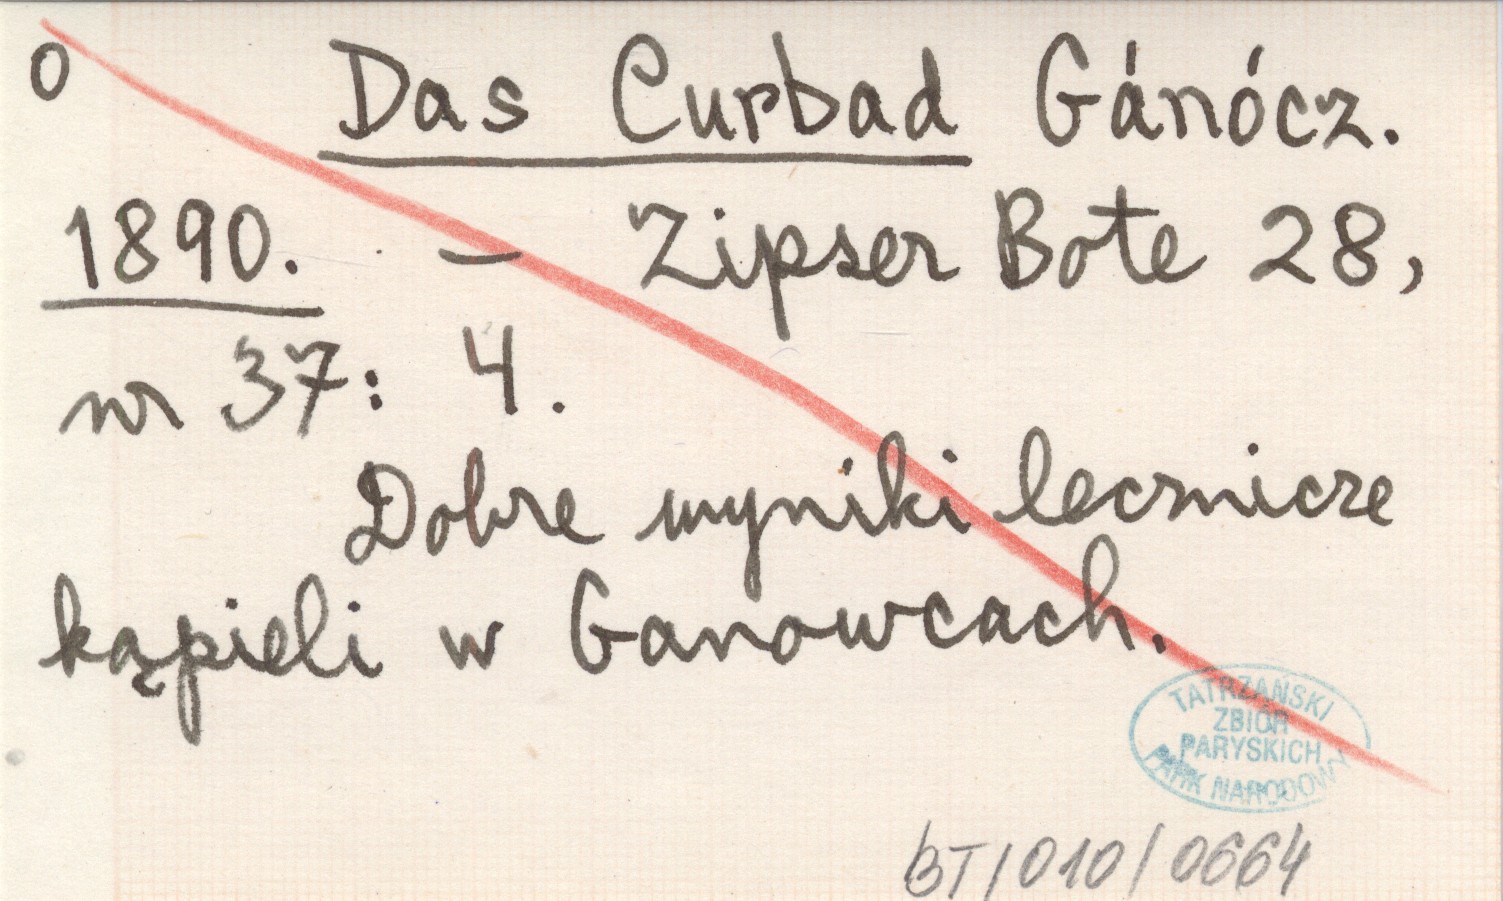 O
Das Curbad Gánócz.
1890. — Zipser Bote 28,
nr 37: 4.
Dobre wyniki lecznicze
kąpieli w Ganowcach.
TATRZAŃSKI
ZBIÓR
PARYSKICH
PARK NARODOWY
BT/010/0664